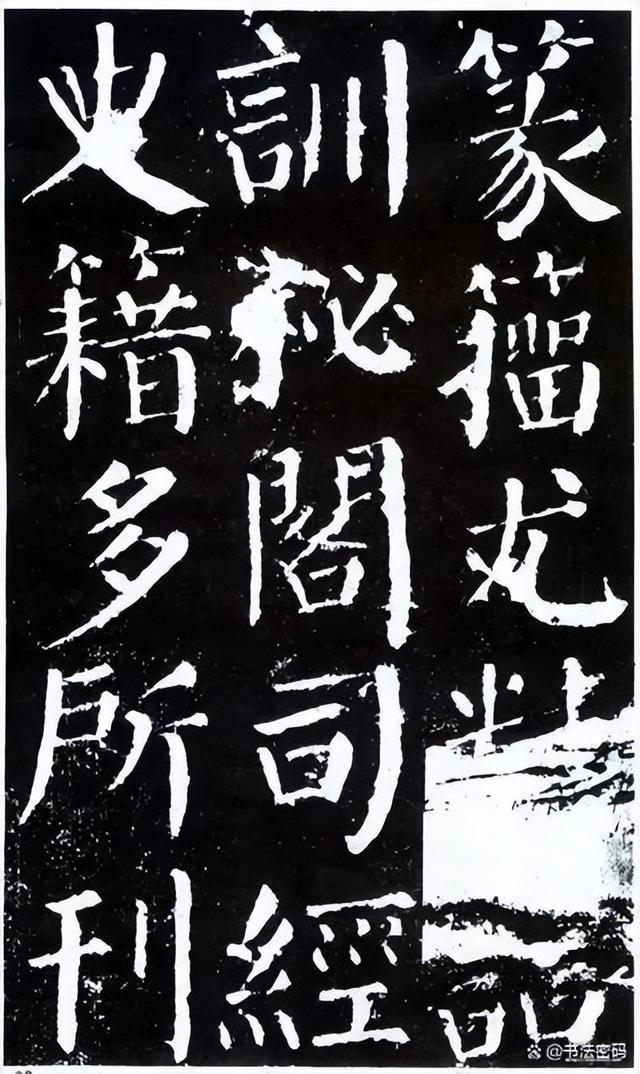 篆籀尤
訓秘閣司經
史籍多所刊
@书法密码